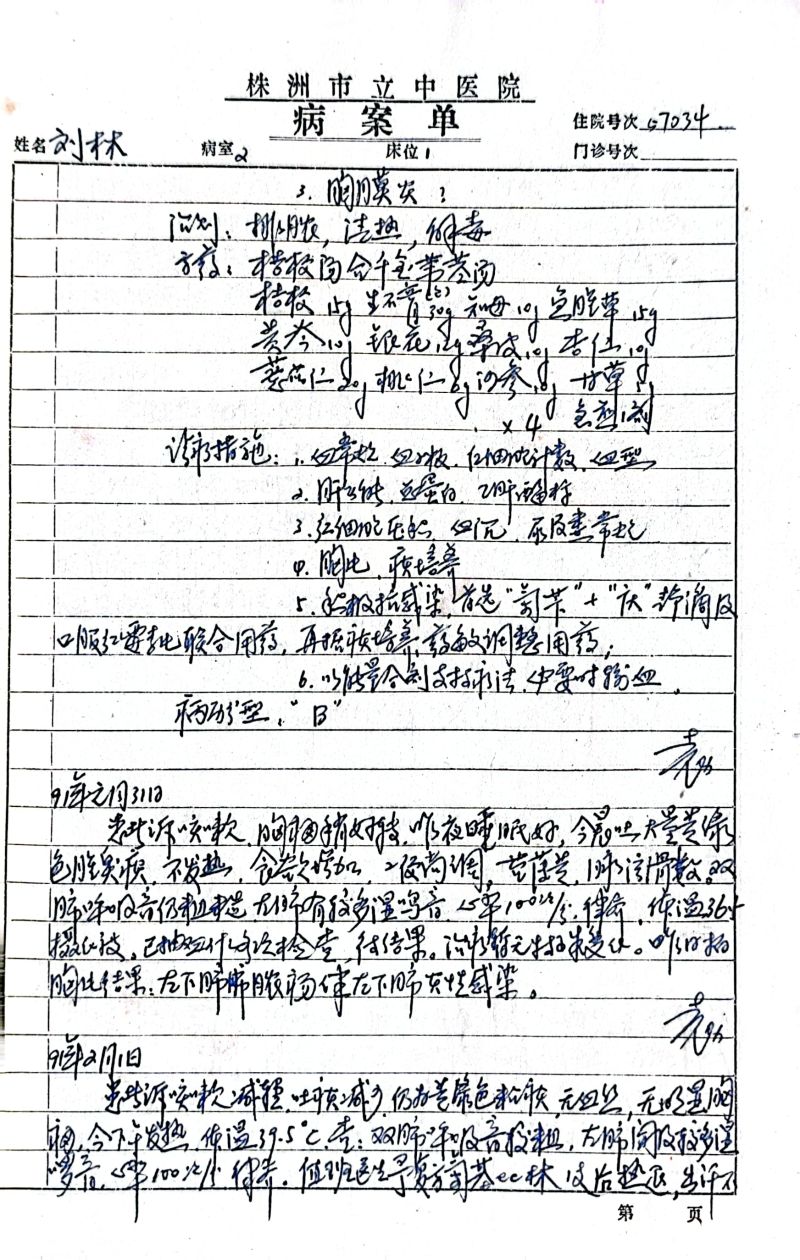 株洲市立中医院
病案单
住院号次 67034
姓名 刘林 病室 2 床位 1 门诊号次
3. 胸膜炎？
治则：排脓，清热，解毒
方药：桔梗汤合千金苇茎汤
桔梗15g 生石膏(先)30g 知母10g 鱼腥草15g
黄芩10g 银花12g 桑皮10g 杏仁10g
薏苡仁20g 桃仁6g 沙参10g 甘草5g
×4 剂
诊疗措施：1. 血常规、血小板、红细胞计数、血型
2. 肝功能、白蛋白、乙肝
3. 红细胞压积、血沉、尿及粪常规
4. 胸片、痰培养
5. 积极抗感染，首选"苄"+"庆"静滴及
口服红霉素联合用药，再据痰培养、药敏调整用药；
6. 以能量合剂支持疗法，必要时输血。
病历分型："B"
袁
91年元月31日
患者诉咳嗽、胸痛稍好转，昨夜睡眠好，今晨吐大量黄绿
色腥臭痰，不发热，食欲增加，二便尚调，苔薄黄，脉滑数。双
肺呼吸音仍粗糙，左肺有较多湿鸣音，心率100次/分，律齐，体温36.5
摄氏度。已抽血什么送检查，待结果。治疗暂无特殊变化。昨日拍
胸片结果：左下肺脓疡伴左下肺炎性感染。
袁
91年2月1日
患者诉咳嗽减轻，吐痰减少，仍为黄绿色粘痰，无血丝，无明显胸
痛，今下午发热，体温39.5℃，查：双肺呼吸音较粗，左肺闻及较多湿
啰音，心率100次/分，律齐。值班医生予复方氨基比林 后热退，出汗不
第 页